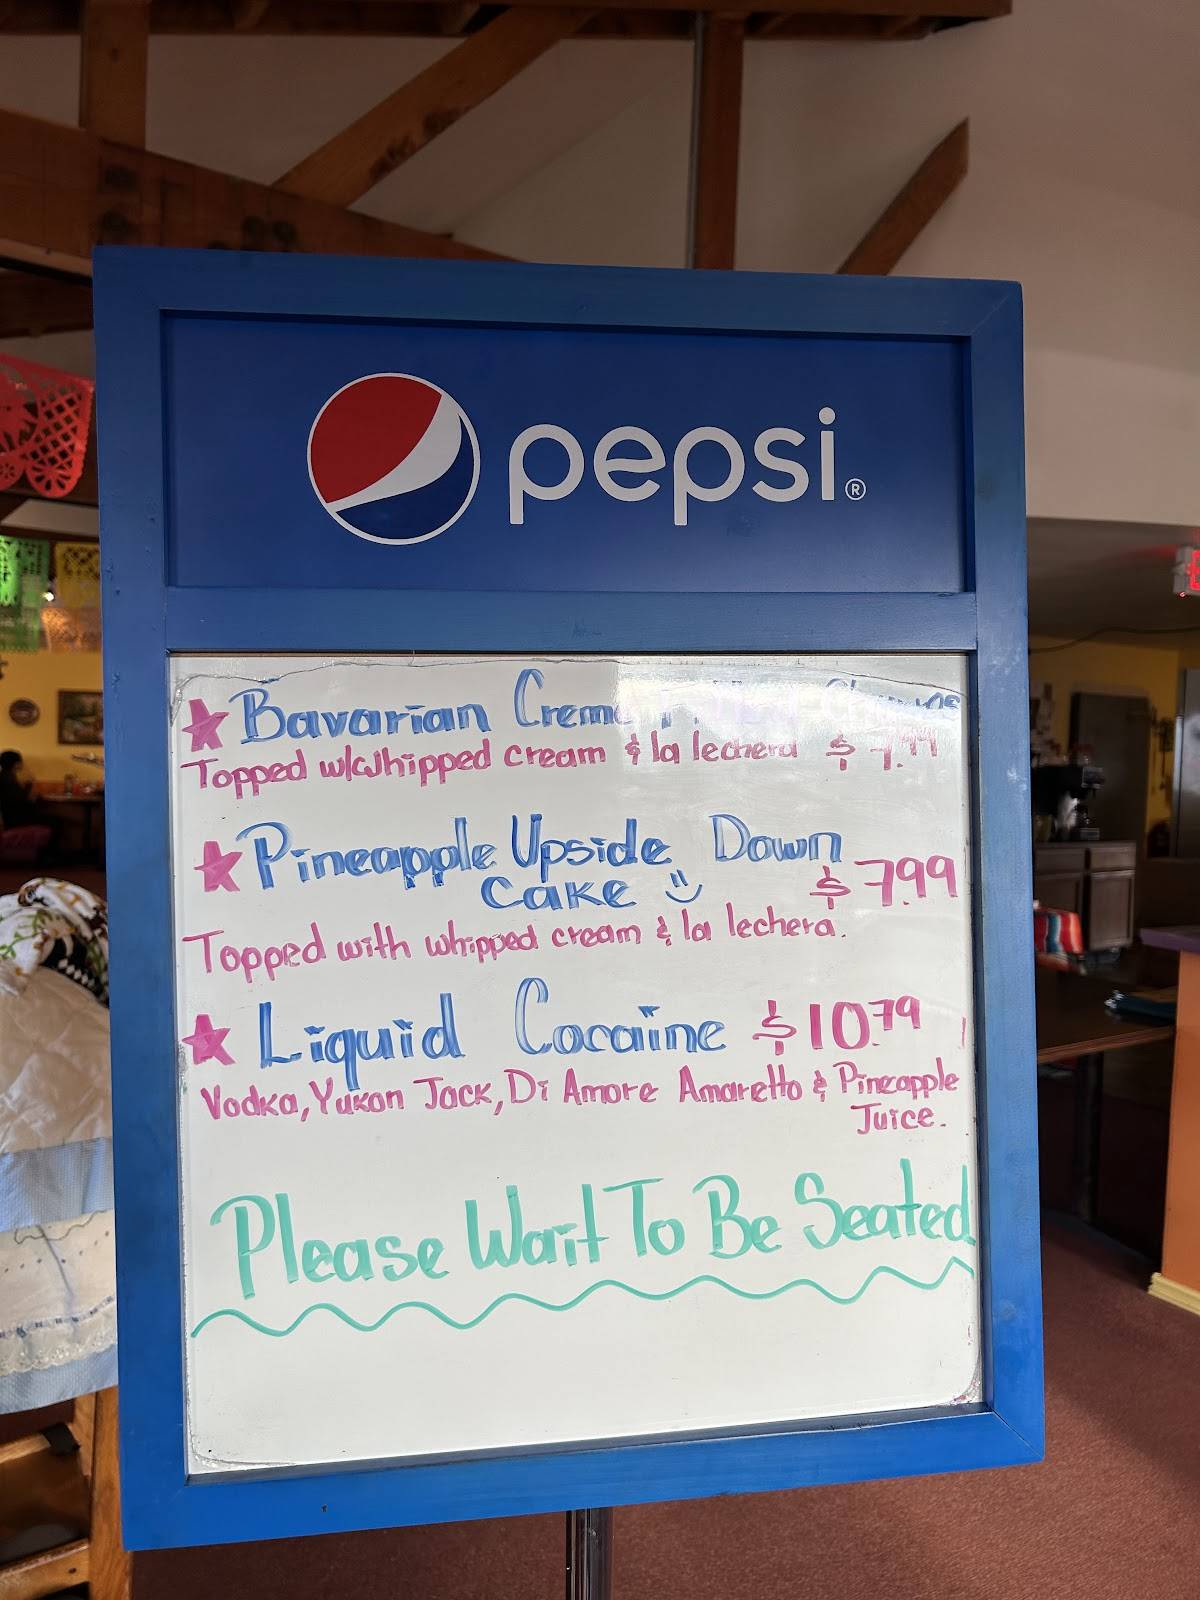 pepsi®
Bavarian Creme Filled Churros
Topped w/whipped cream & la lechera $7.99
Pineapple Upside Down
Cake $7.99
Topped with whipped cream & la lechera.
Liquid Cocaine $10.79
Vodka, Yukon Jack, Di Amore Amaretto & Pineapple
Juice.
Please Wait To Be Seated